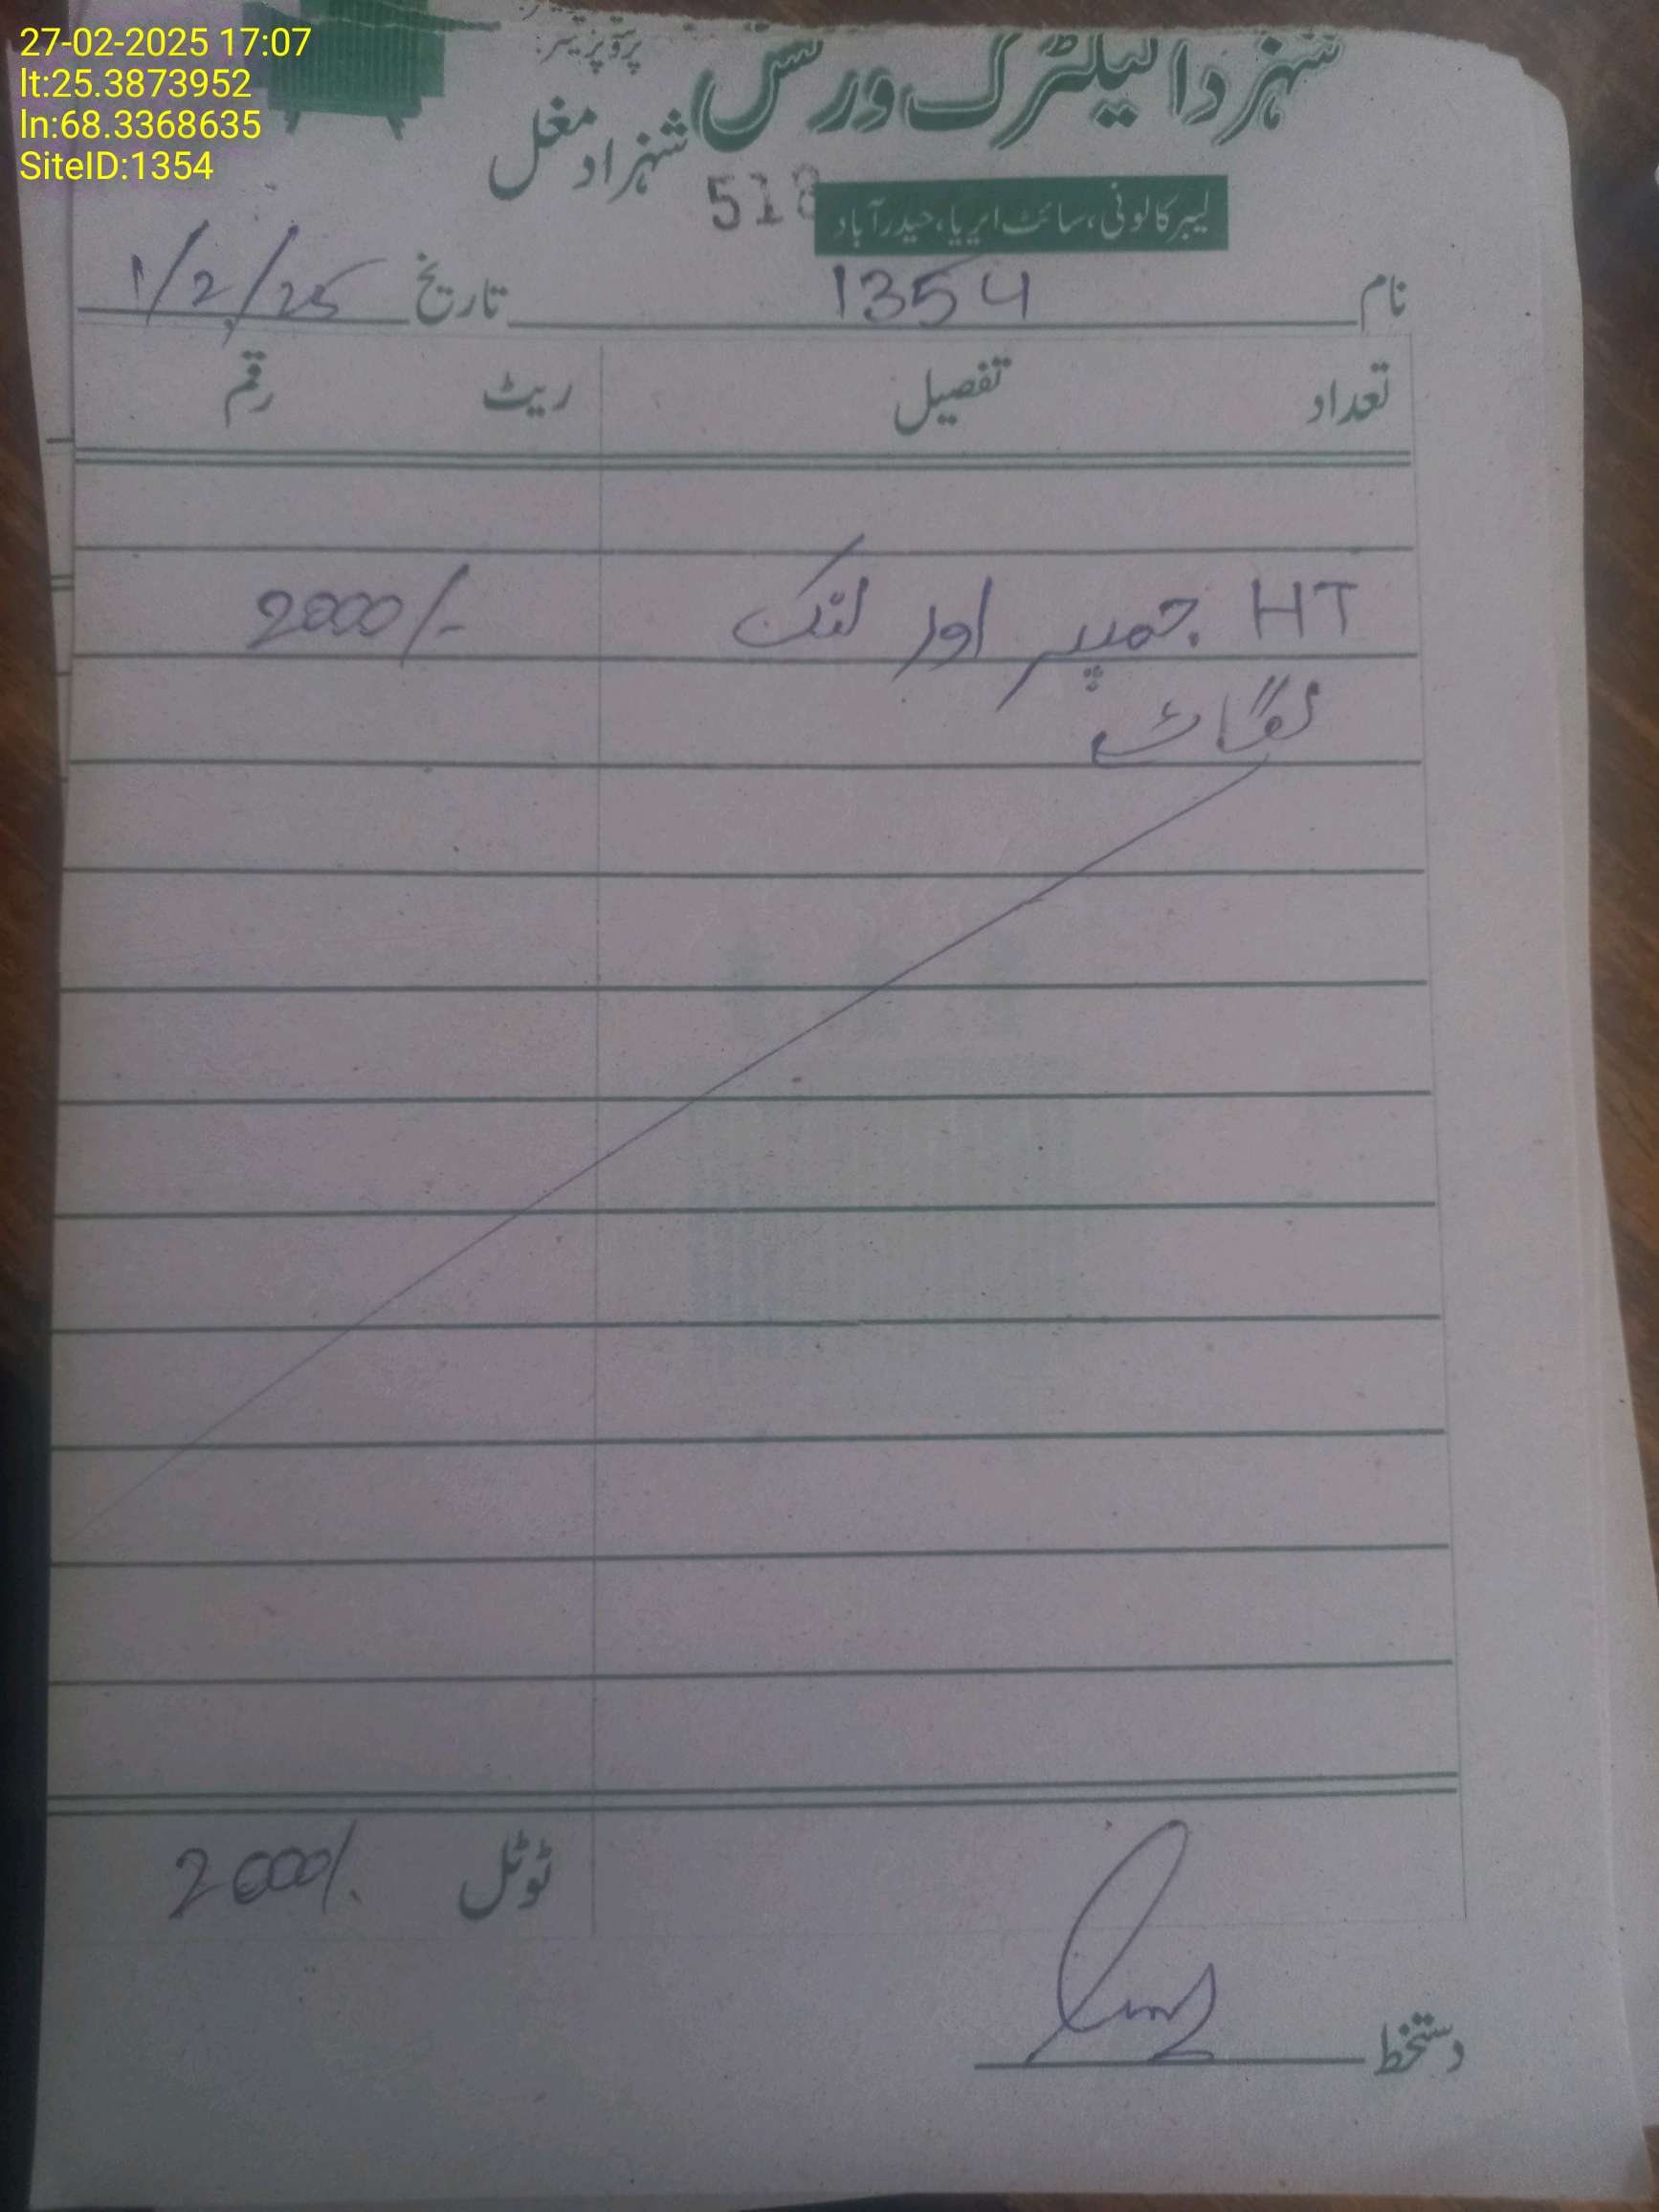 27-02-2025 17:07
lt:25.3873952
ln:68.3368635
SiteID:1354
پروپرائیٹر:
شہزاد الیکٹرک ورکس
شہزاد مغل
518
لیبر کالونی، سائٹ ایریا، حیدرآباد
نام 1354 تاریخ 1/2/25
تعداد تفصیل ریٹ رقم
HT جمپر اور لنک 2000/-
لگائے
ٹوٹل 2000/.
دستخط